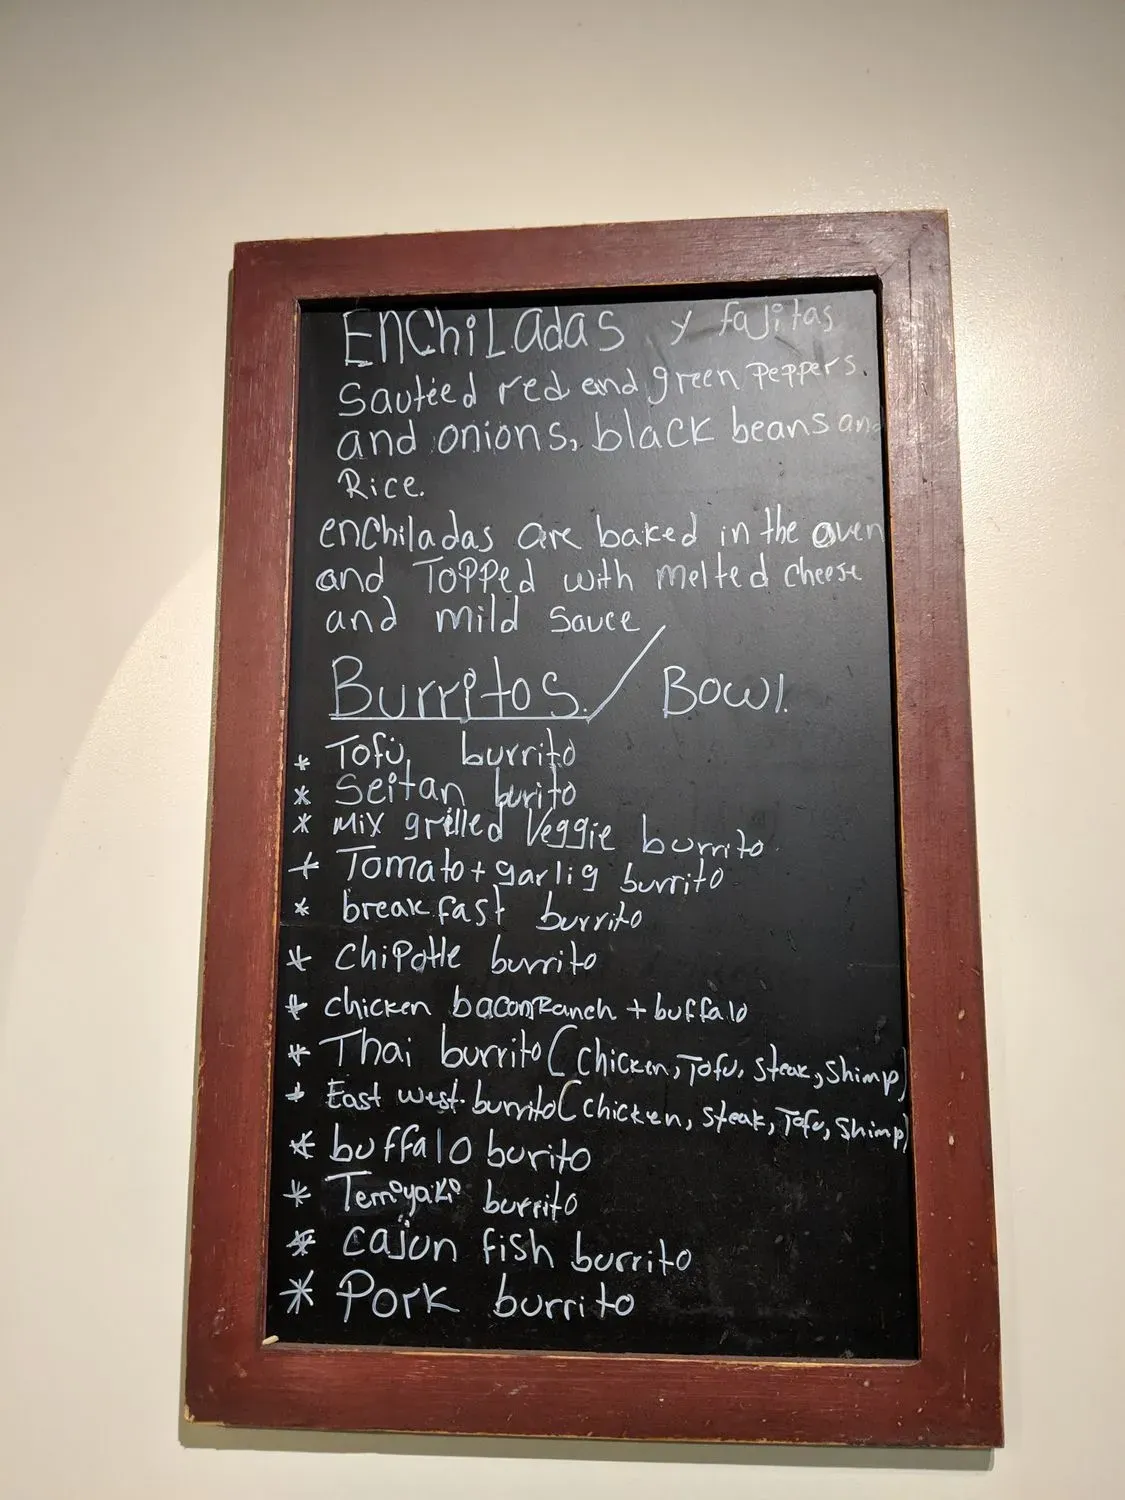 EnChiLadas y fajitas
Sauteéd red and green Peppers.
and onions, black beans and
Rice.
enchiladas are baked in the oven
and Topped with melted cheese
and mild sauce
Burritos. / Bowl.
* Tofu, burrito
* Seitan burito
* Mix grilled Veggie burrito
* Tomato + garlig burrito
* breakfast burrito
* Chipotle burrito
* chicken bacon Ranch + buffalo
* Thai burrito (Chicken, Tofu, Steak, Shimp)
* East west burrito (chicken, steak, Tofu, Shimp)
* buffalo burito
* Terriyaki burrito
* cajun fish burrito
* Pork burrito